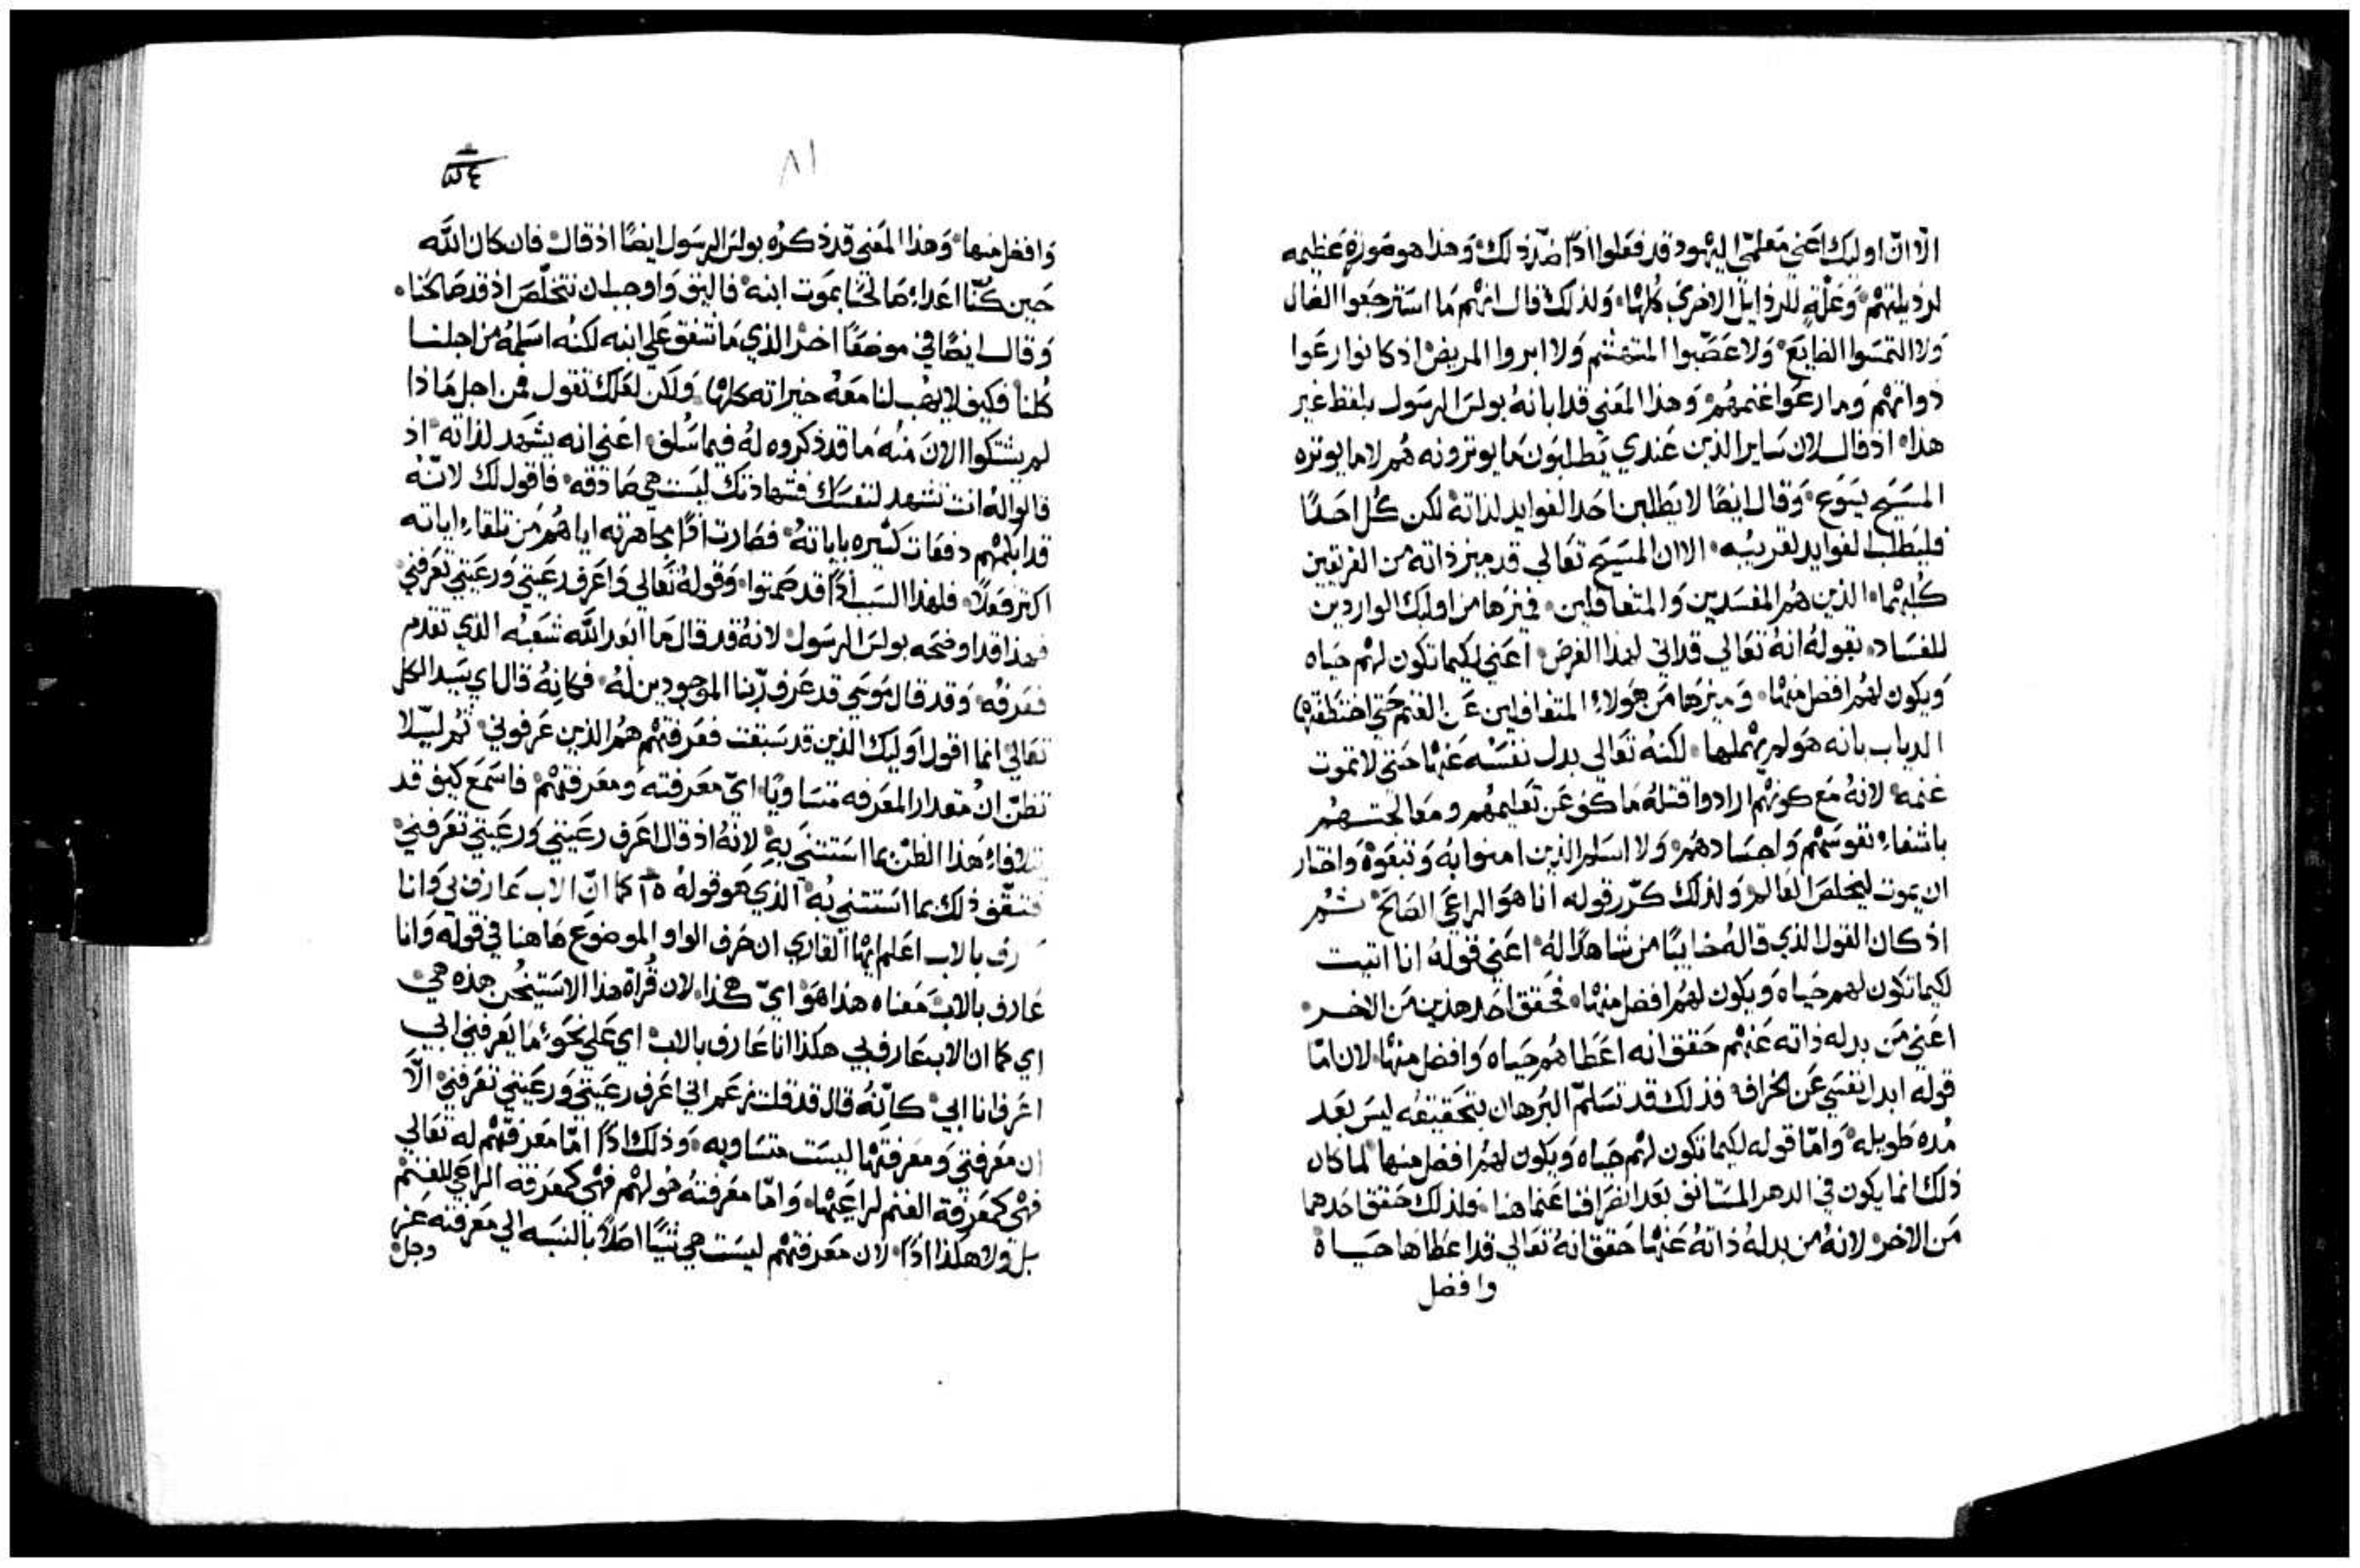 الا ان اوليك اعني معلمي اليهود قد فعلوا اذًا ضد ذلك وهذا هو صورة عظيمه
لرذيلتهم وعلة للرذايل الاخرى كلها ولذلك قال انهم ما استرجعوا الضال
ولا التمسوا الضايع ولا عصبوا المتهشم ولا ابروا المريض اذ كانوا رعوا
ذواتهم وما رعوا غنمهم وهذا المعني قد ابانهُ بولس الرسول بلفظ غير
هذا اذ قال لان ساير الذين عندي يطلبون ما يوثرونه هم لا ما يوثره
المسيح يسوع وقال ايضًا لا يطلبن احد الفوايد لذاته لكن كل احدًا
فليطلب الفوايد لقريبه الا ان المسيح تعالي قد ميز ذاته من الفريقين
كليهما الذين هم المفسدين والمتغافلين فميزها من اوليك الواردين
للفساد بقوله انهُ تعالي قد اتى لهذا الغرض اعني لكيما تكون لهم حياه
ويكون لهم افضل منها وميزها من هولاء المتغافلين عن الغنم حتي اختطفتها
الدياب بانه هو لم يهملها لكنهُ تعالي بدل نفسه عنها حتي لا تموت
غنمه لانهُ مع كونهم ارادوا قتله ما كف عن تعليمهم ومعالجتهم
باشفاء نفوسهم واجسادهم ولا اسلم الذين امنوا به وتبعوه واختار
ان يموت ليخلص العالم ولذلك كرّر قوله انا هو الراعي الصالح ثم
اذ كان القول الذي قاله خايبًا من شاهدًا لهُ اعني قوله انا اتيت
لكيما تكون لهم حياه ويكون لهم افضل منها فحقق احد هذين من الاخر
اعني من بدله ذاته عنهم حقق انه اعطاهم حياه وافضل منها لان امّا
قوله ابدل نفسي عن الخراف فذلك قد تسلم البرهان بتحقيقه ليس بعد
مده طويله وامّا قوله لكيما تكون لهم حياه ويكون لهم افضل منها لما كان
ذلك انما يكون في الدهر المستانف بعد انصرافنا عما هنا فلذلك حقق احدهما
من الاخر لانهُ من بدله ذاتهُ عنها حقق انهُ تعالي قد اعطاها حياة
وافضل
٨١
وافضل منها وهذا المعني قد ذكره بولس الرسول ايضًا اذ قال فان كان الله
حين كُنّا اعداء صالحنا بموت ابنه فاليق واوجب ان نتخلص اذ قد صالحنا
وقال ايضًا في موضعًا اخر الذي ما شفق علي ابنه لكنه اسلمهُ من اجلنا
كلنا فكيف لا يهب لنا معهُ خيراته كلها ولكن لعلك تقول فمن اجل ماذا
لم يشتكوا الان منه ما قد ذكروه لهُ فيما سلف اعني انه يشهد لذاته اذ
قالوا لهُ انت تشهد لنفسك فشهادتك ليست هي صادقه فاقول لك لانّه
قد ابكمهم دفعات كثيره باياته فصارت اذًا مجاهرته اياهم من تلقاء اياته
اكثر فعلًا فلهذا السبب اذًا قد صمتوا وقولهُ تعالي واعرف رعيتي ورعيتي تعرفني
فهذا قد اوضحه بولس الرسول لانهُ قد قال ما ابعد الله شعبه الذي تقدم
فعرفه وقد قال موسي قد عرف ربنا الموجودين لهُ فكانهُ قال اي سيد الكل
تعالي انما اقول اوليك الذين قد سبقت فعرفتهم هم الذين عرفوني ثم ليلا
تظنّ ان مقدار المعرفه متساويًا ايّ معرفته ومعرفتهم فاسمع كيف قد
تلافاء هذا الظن بما استثني به لانهُ اذ قال اعرف رعيتي ورعيتي تعرفني
فثقف ذلك بما استثني به الذي هو قوله ١٥ كما انّ الاب عارف بي وانا
عارف بالاب اعلم ايها القاري ان حرف الواو الموضوع هاهنا في قوله وانا
عارف بالاب معناه هذا هو ايّ هكذا لان قراة هذا الاستيخن هذه هي
اي كما ان الاب عارف بي هكذا انا عارف بالاب اي علي نحو ما يعرفني ابي
اعرف انا ابي كانّهُ قال قد قلت نعم اني اعرف رعيتي ورعيتي تعرفني الّا
ان معرفتي ومعرفتها ليست متساويه وذلك اذًا امّا معرفتهم له تعالي
فهي كمعرفة الغنم لراعيها وامّا معرفته هو لهم فهي كمعرفة الراعي للغنم
بل ولا هكذا اذًا لان معرفتهم ليست هي شيًا اصلًا بالنسبه الي معرفته عز
وجل